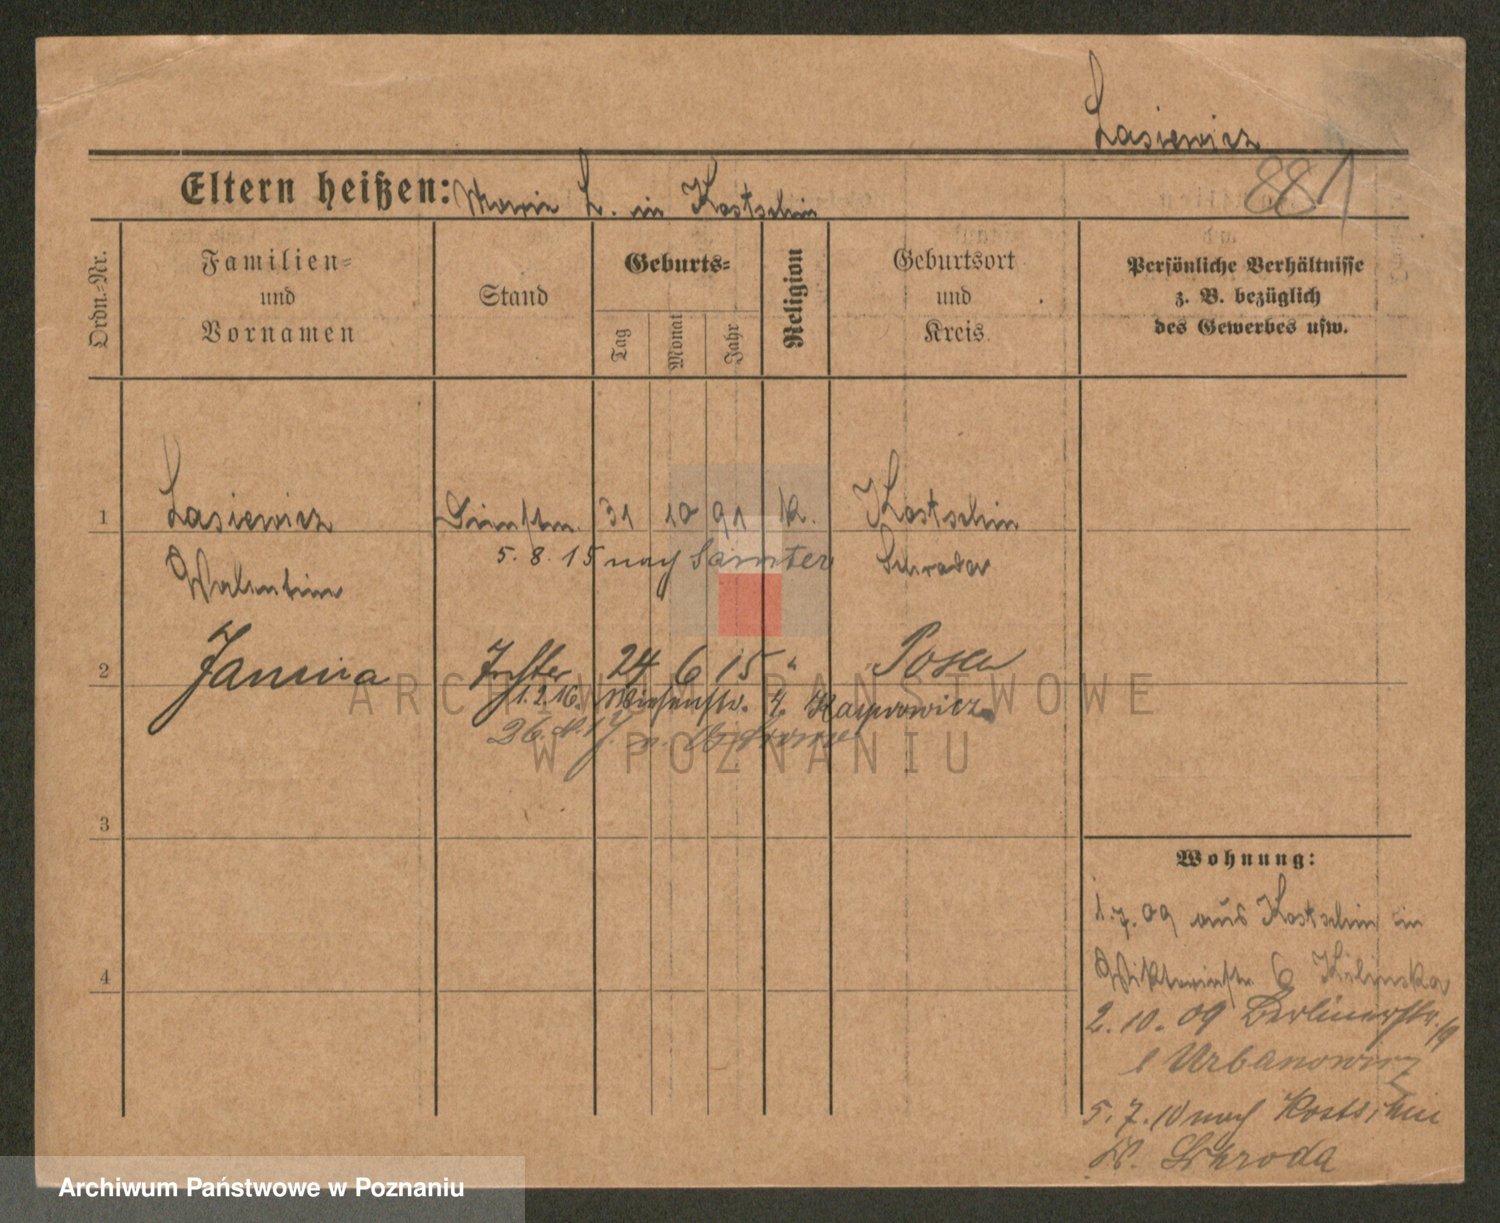 Lasiewicz
881
Eltern heißen: Marie L. in Kostschin
Ordn.-Nr.
Familien-
und
Vornamen
Stand
Geburts-
Tag
Monat
Jahr
Religion
Geburtsort
und
Kreis
Persönliche Verhältnisse
z. B. bezüglich
des Gewerbes usw.
1 Lasiewicz Dienstm. 31 10 91 k. Kostschin
5. 8. 15 nach Samter Schroda
Valentine
2 Janina Tochter 24 6 15 " Posen
1.2.16. Wiesenstr. 4. Kasprowicz
26. 17. n.
3
Wohnung:
1.7.09 aus Kostschin in
Viktoriastr. 6 Kilinska
4
2.10.09 Berlinerstr. 19
b Urbanowicz
5.7.10 nach Kostschin
Kr. Schroda
ARCHIWUM PAŃSTWOWE
W POZNANIU
Archiwum Państwowe w Poznaniu